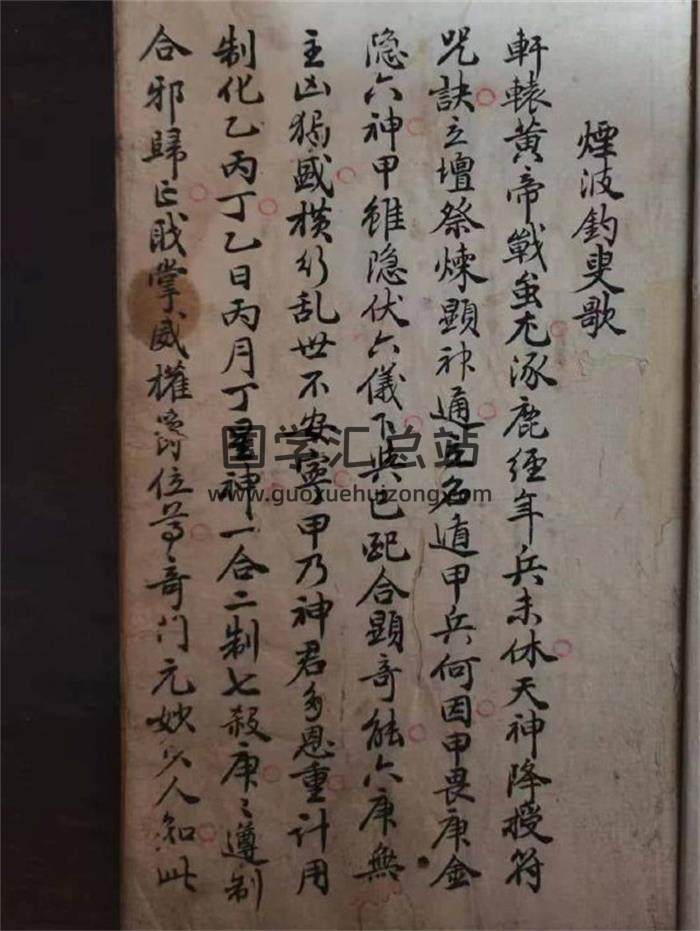 煙波釣叟歌
軒轅黄帝戰蚩尤涿鹿經年兵未休天神降授符
咒訣立壇祭煉顯神通立名遁甲兵何因甲畏庚金
隐六神甲雖隐伏六儀下與巳配合顯奇能六庚無
主凶猖盛横行乱世不安寧甲乃神君多恩重計用
制化乙丙丁乙日丙月丁星神一合二制七殺庚〻遵制
合邪歸正戝掌威權爵位尊奇门元妙少人知此
国学汇总站
www.guoxuehuizong.com